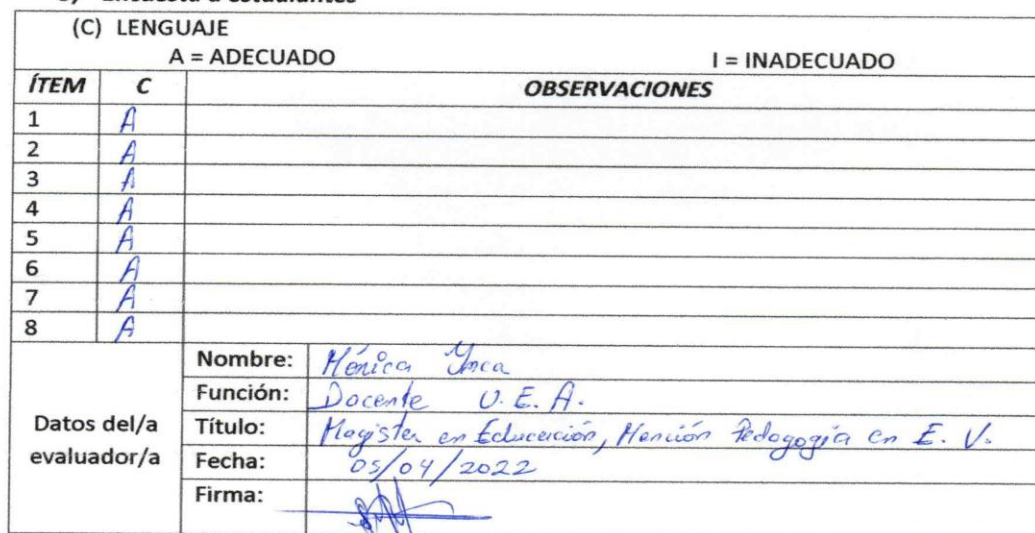 Encuesta a estudiantes
(C) LENGUAJE
A = ADECUADO I = INADECUADO
ÍTEM C OBSERVACIONES
1 A
2 A
3 A
4 A
5 A
6 A
7 A
8 A
Datos del/a evaluador/a
Nombre: Mónica
Función: Docente U.E.A.
Título: Magister en Educación, Mención Pedagogía en E. V.
Fecha: 05/04/2022
Firma: